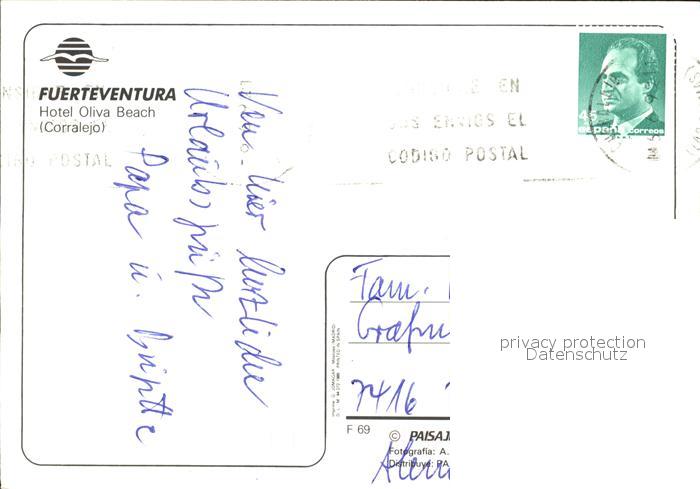 FUERTEVENTURA
Hotel Oliva Beach
(Corralejo)
EN
ENVIOS EL
CODIGO POSTAL
POSTAL
45
españa correos
Von hier herzliche
Urlaubsgrüße
Papa u. Brigitte
Fam.
7416
F 69
© PAISAJ
Fotografía: A.
Distribuye: PA
privacy protection
Datenschutz